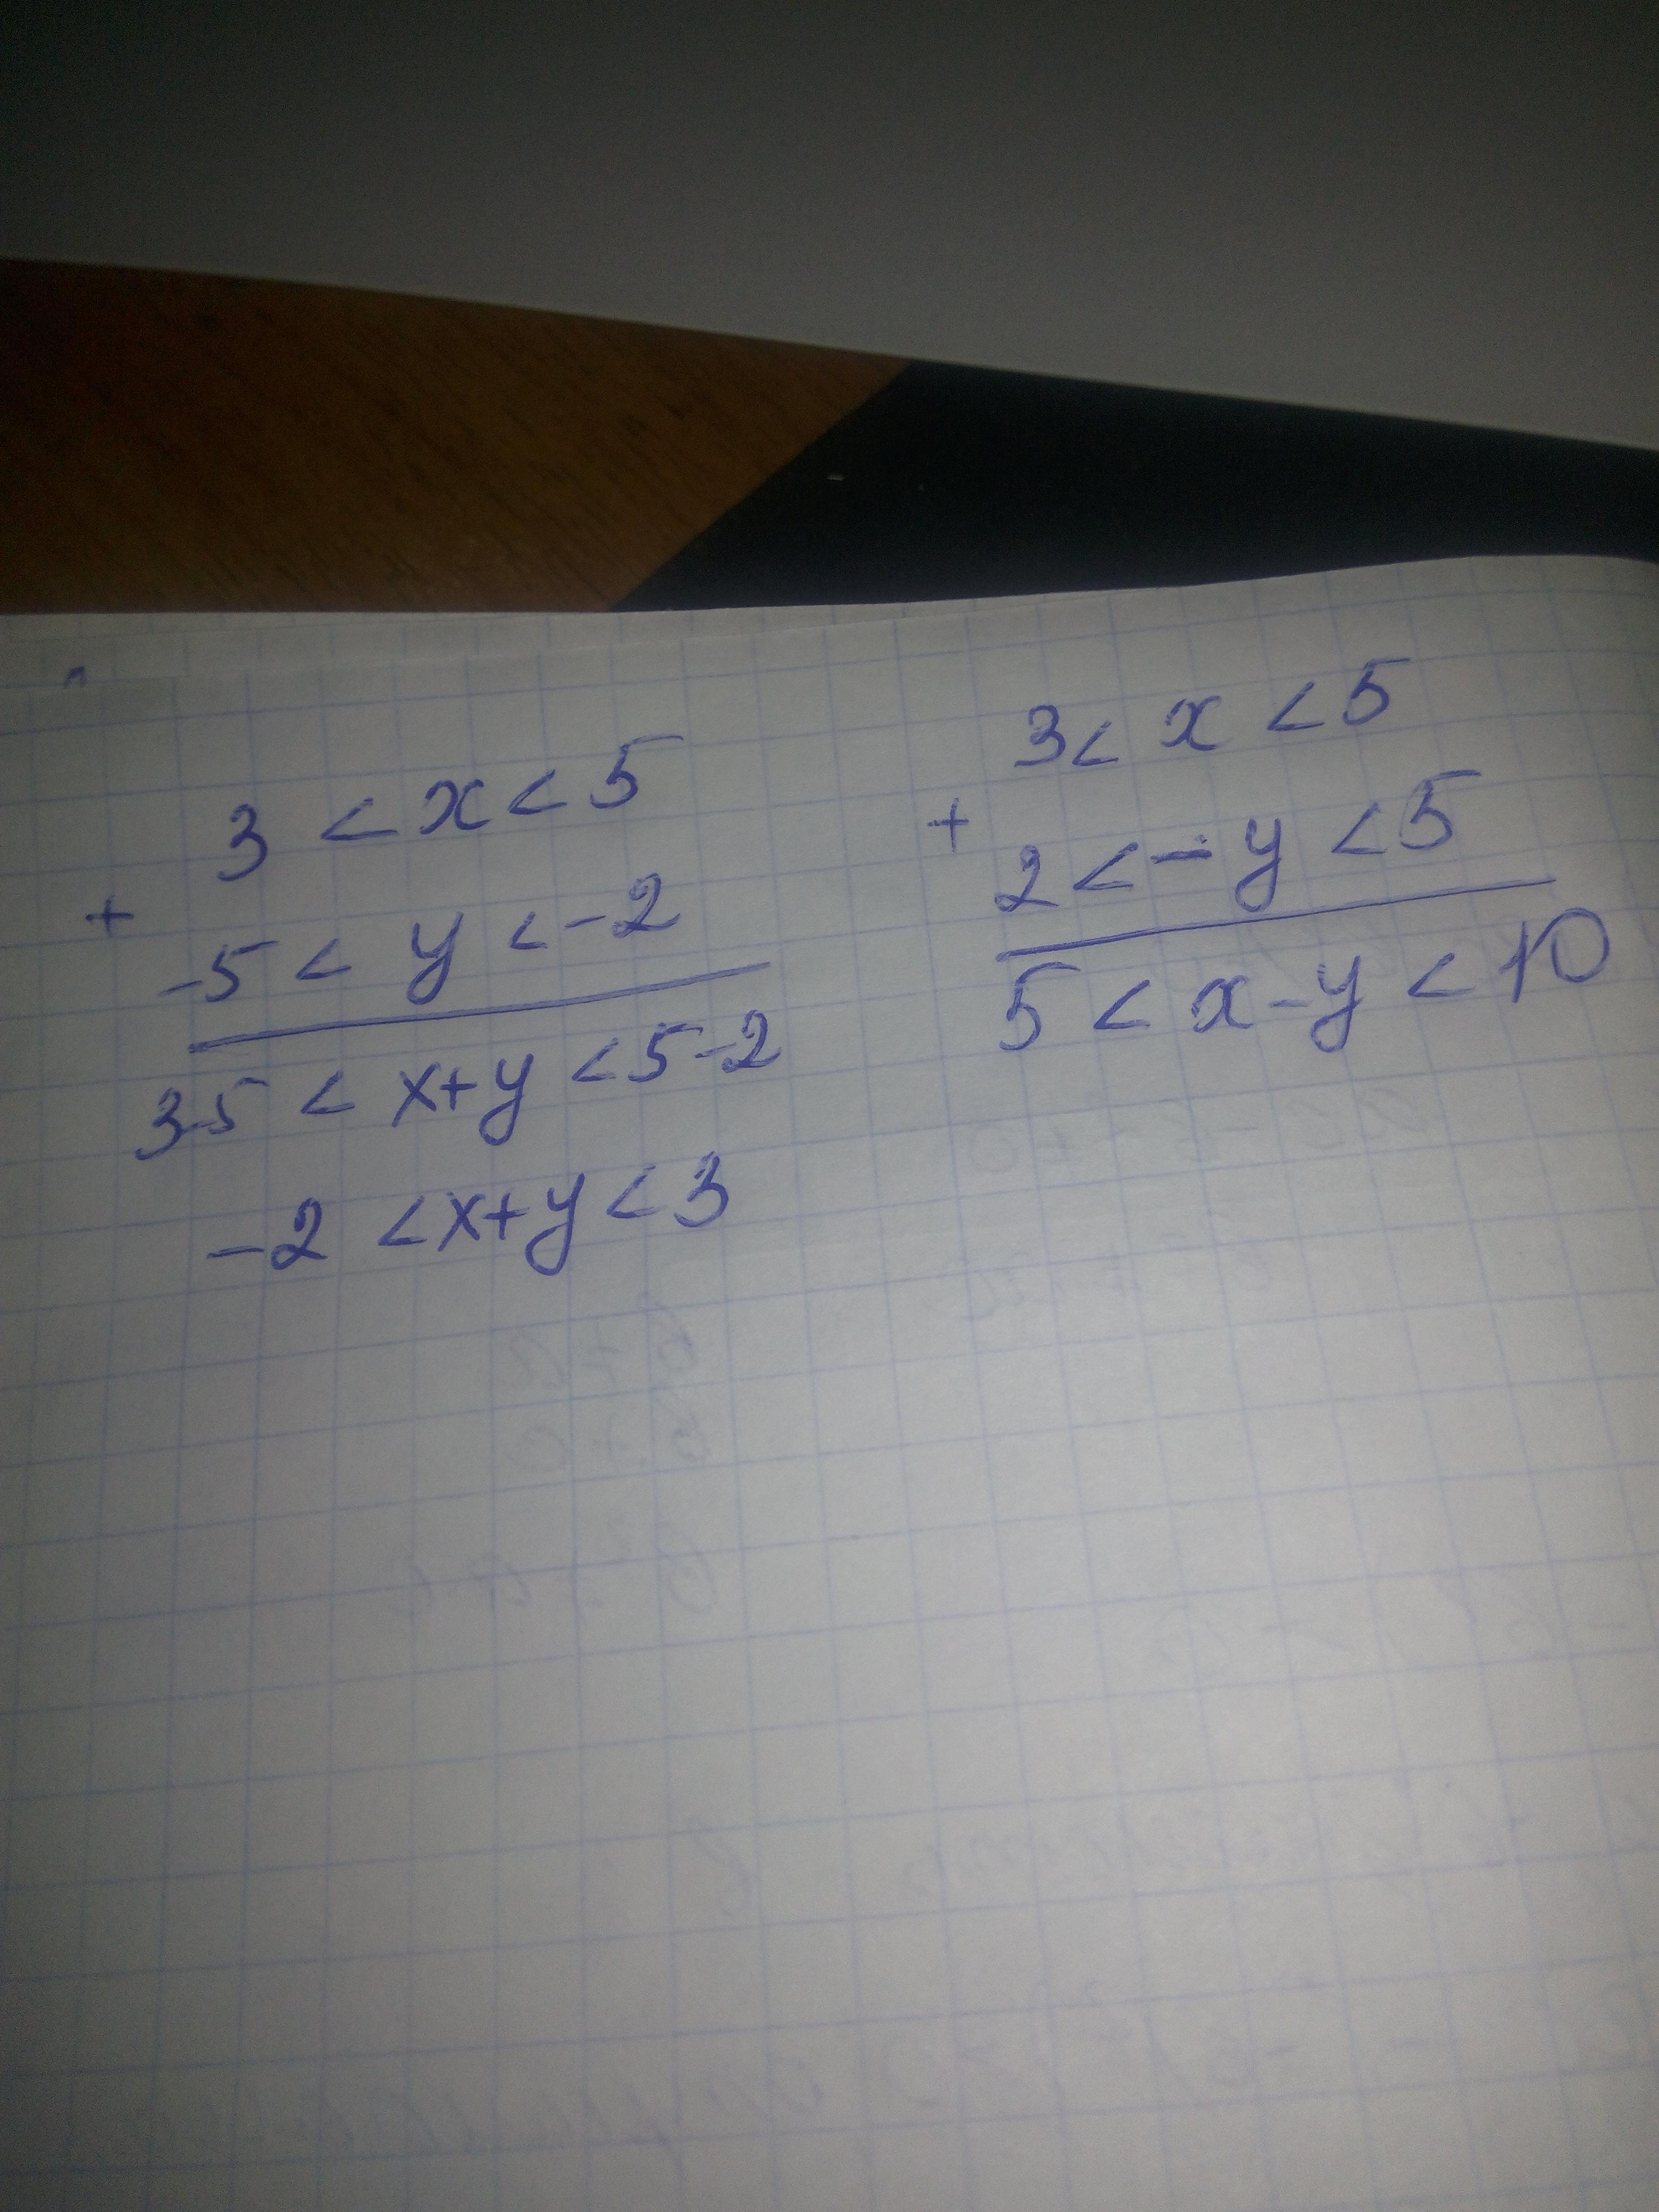 3 < x < 5
+
-5 < y < -2
3-5 < x+y < 5-2
-2 < x+y < 3
3 < x < 5
+
2 < -y < 5
5 < x-y < 10